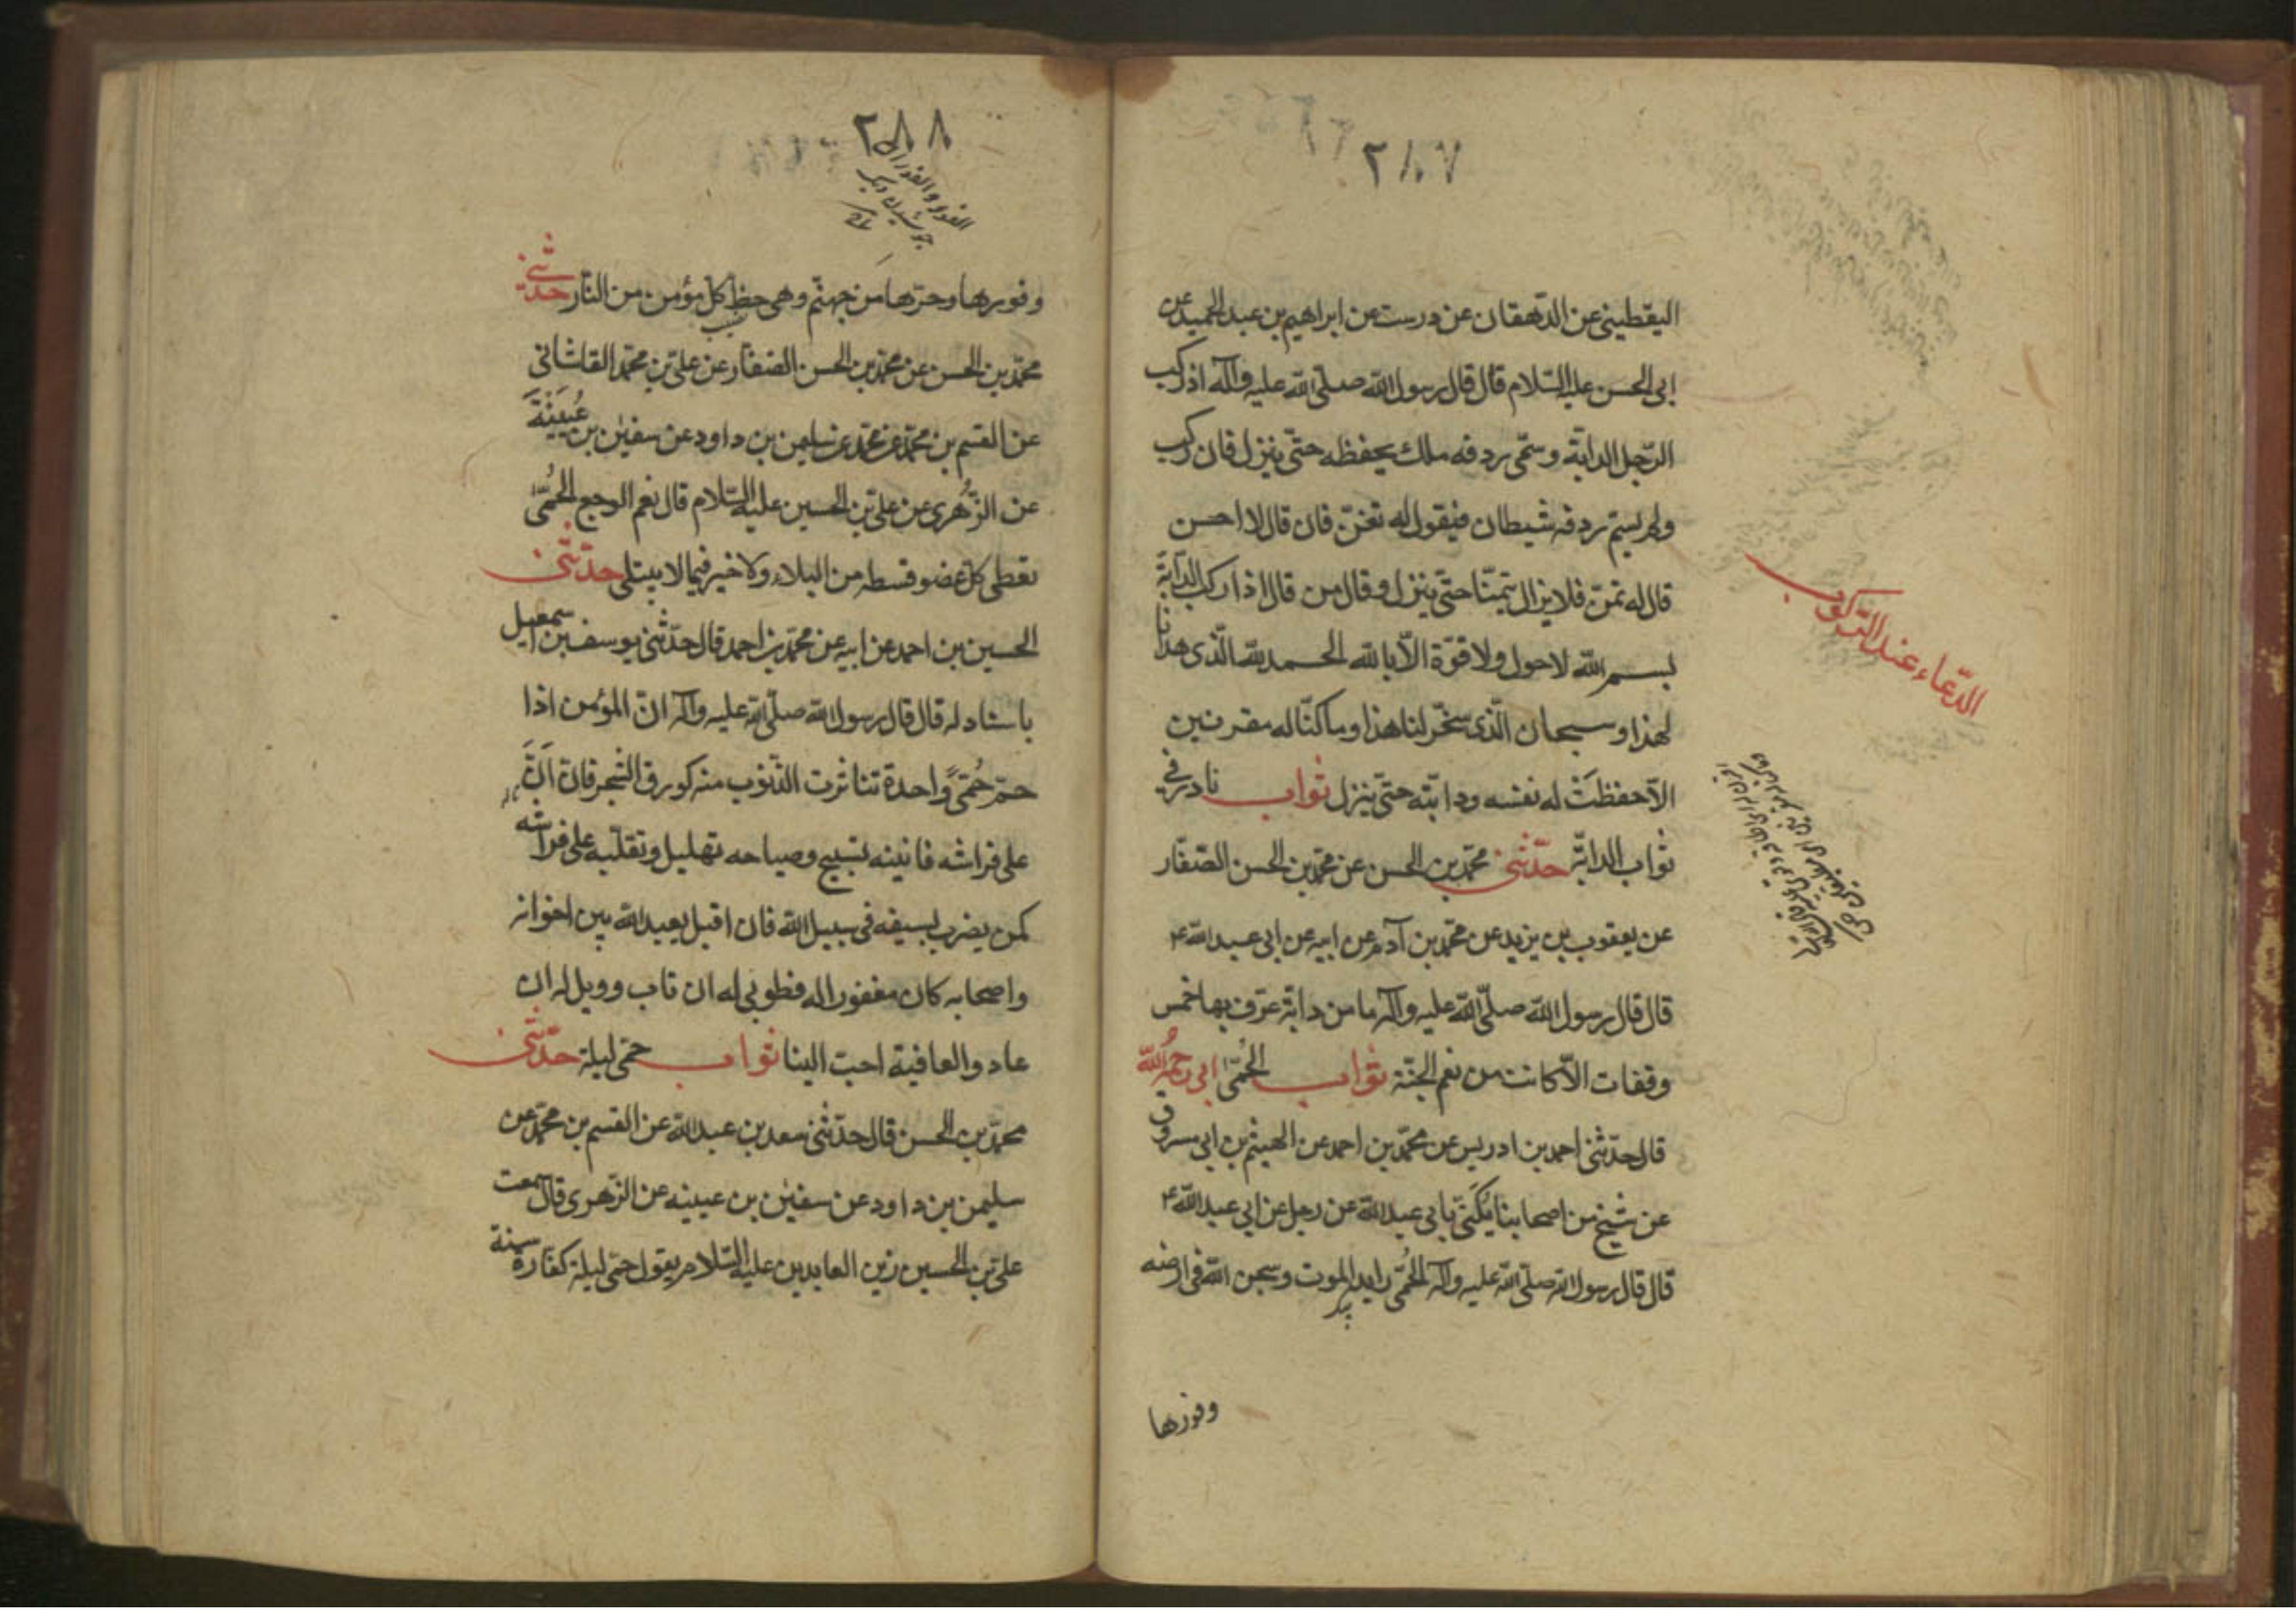 ٢٨٧
اليقطينى عن الدهقان عن درست عن ابراهيم بن عبد الحميد عن
ابى الحسن عليه السّلام قال قال رسول الله صلّى الله عليه وآله اذا ركب
الرّجل الدابّة وسمّى ردفه ملك يحفظه حتّى ينزل فان ركب
ولم يسمّ ردفه شيطان فيقول له تغنّ فان قال لا احسن
قال له تمنّ فلا يزال يتمنّا حتّى ينزل وقال من قال اذا ركب الدابّة
بسم الله لا حول ولا قوّة الّا بالله الحمد لله الّذى هدانا
لهذا و سبحان الّذى سخّر لنا هذا وما كنّا له مقرنين
الّا حفظت له نفسه ودابّته حتّى ينزل ثواب نادر فى
ثواب الدابّة حدّثنى محمّد بن الحسن عن محمّد بن الحسن الصّفّار
عن يعقوب بن يزيد عن محمّد بن آدم عن ابيه عن ابى عبد الله ع
قال قال رسول الله صلّى الله عليه وآله ما من دابّة عرّف بها خمس
وقفات الّا كانت من نعم الجنّة ثواب الحُمّى ابى رحمه الله
قال حدّثنى احمد بن ادريس عن محمّد بن احمد عن الهيثم بن ابى مسروق
عن شيخ من اصحابنا يُكَنّى بابى عبد الله عن رجل عن ابى عبد الله ع
قال قال رسول الله صلّى الله عليه وآله الحُمّى رايد الموت وسجن الله فى ارضه
وفورها
الدّعاء عند الرّكوب
٢٨٨
الفور والفوران
جوشيدن ديك
وفورها وحرّها من جهنّم وهى حظ كلّ مؤمن من النّار حدّثنى
محمّد بن الحسن عن محمّد بن الحسن الصّفّار عن علىّ بن محمّد القاشانى
عن القسم بن محمّد عن سليمن بن داود عن سفين بن عُيَيْنَة
عن الزُّهرى عن علىّ بن الحسين عليه السّلام قال نعم الوجع الحُمّى
تعطى كلّ عضو قسطه من البلاء ولا خير فيما لا يبتلى حدّثنى
الحسين بن احمد عن ابيه عن محمّد بن احمد قال حدّثنى يوسف بن اسمعيل
باسناد له قال قال رسول الله صلّى الله عليه وآله انّ المؤمن اذا
حمّ حُمّىً واحدة تناثرت الذّنوب منه كورق الشّجر فان اَنَّ
على فراشه فانينه تسبيح وصياحه تهليل وتقلّبه على فراشه
كمن يضرب بسيفه فى سبيل الله فان اقبل يعبد الله بين اخوانه
واصحابه كان مغفورا له فطوبى له ان تاب وويل له ان
عاد والعافية احبّ الينا ثواب حمّى ليلة حدّثنى
محمّد بن الحسن قال حدّثنى سعد بن عبد الله عن القسم بن محمّد عن
سليمن بن داود عن سفين بن عيينه عن الزّهرى قال سمعت
علىّ بن الحسين زين العابدين عليه السّلام يقول حمّى ليلة كفّارة سنة